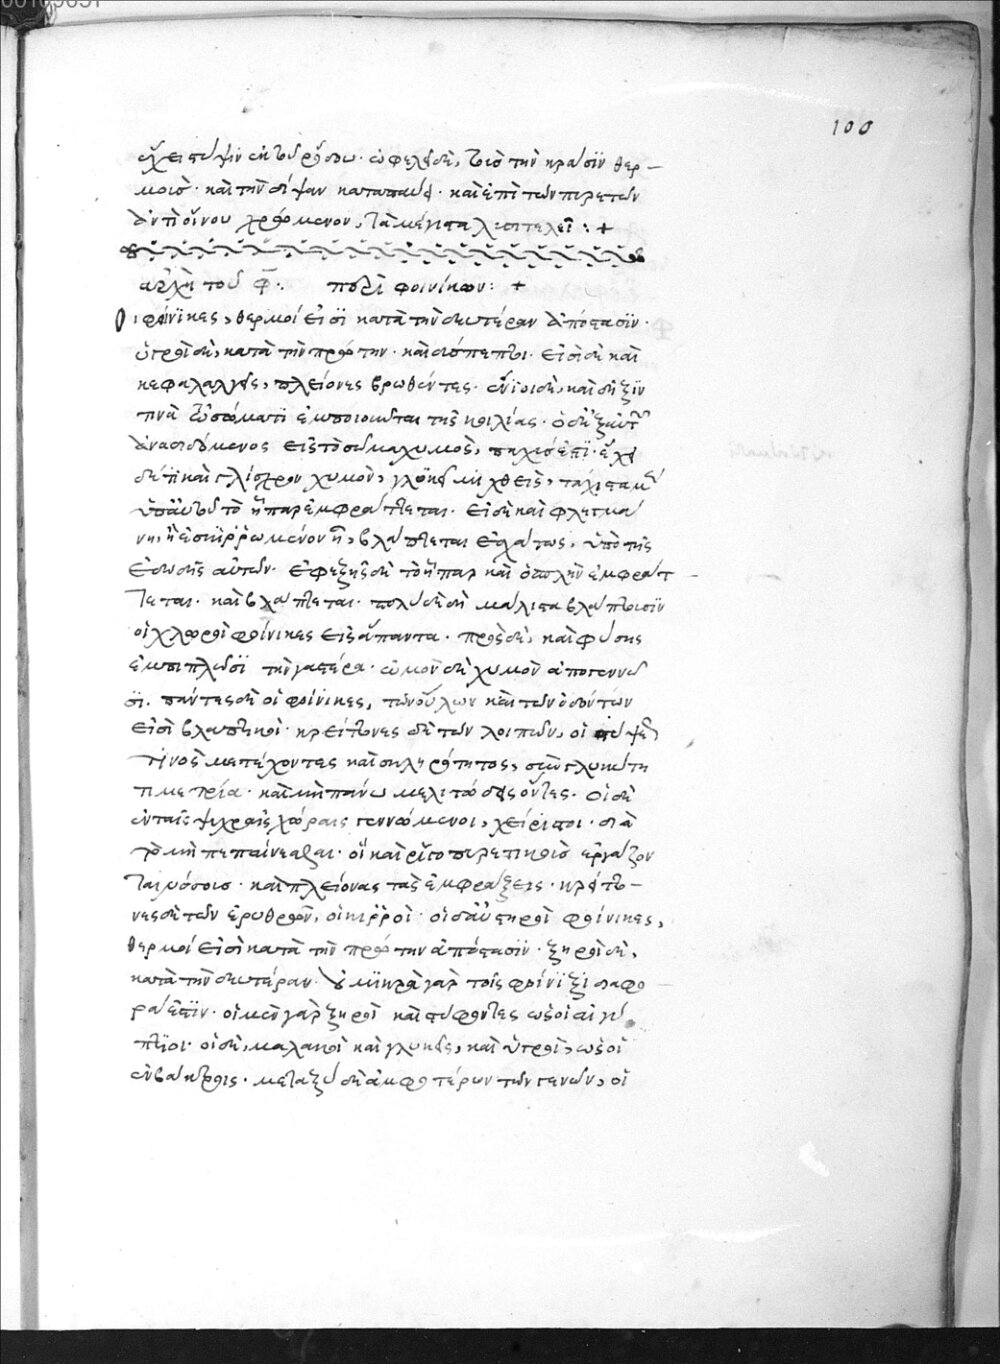 100
ἔχει πέψιν ἐν τῷ ῥόδῳ· ὠφελεῖ δὲ, τοὺς τὴν κρᾶσιν θερ
μοὺς· καὶ τὴν δίψαν καταπαύει· καὶ ἐπὶ τῶν πυρετῶν
ἀντὶ οἴνου χρώμενον, τὰ μέγιστα λυσιτελεῖ : +
ἀρχὴ τοῦ φ̄. περὶ φοινίκων: +
Οἱ φοίνικες, θερμοί εἰσι κατὰ τὴν δευτέραν ἀπόστασιν·
ὑγροὶ δὲ, κατὰ τὴν πρώτην· καὶ δύσπεπτοι· εἰσὶ δὲ καὶ
κεφαλαλγεῖς, πλείονες βρωθέντες· ἐνίοις δὲ, καὶ δῆξιν
τινὰ τῷ στόματι ἐμποιοῦνται τῆς κοιλίας· ὁ δὲ ἐξ αὐτῶν
ἀναδιδόμενος εἰς τὸ σῶμα χυμὸς, παχύς ἐστι· ἔχει
δέ τι καὶ γλίσχρον χυμὸν, γλυκεῖ μιχθεὶς, τάχιστα μὲν
ὑπ' αὐτοῦ τὸ ἧπαρ ἐμφράττεται· εἰ δὲ καὶ φλεγμαῖ
νη, ἢ ἐσκιρρωμένον ᾖ, βλάπτεται ἐσχάτως, ὑπὸ τῆς
ἐδωδῆς αὐτῶν· ἐφεξῆς δὲ τὸ ἧπαρ καὶ ὁ σπλὴν ἐμφράτ
τεται· καὶ βλάπτεται· πολὺ δὲ δὴ μάλιστα βλάπτουσιν
οἱ χλωροὶ φοίνικες εἰς ἅπαντα· πρὸς δὲ, καὶ φύσης
ἐμπιπλῶσι τὴν γαστέρα· ὠμὸν δὲ χυμὸν ἀπογεννῶ
σι. πάντες δὲ οἱ φοίνικες, τῶν οὔλων καὶ τῶν ὀδόντων
εἰσὶ βλαπτικοὶ· κρείττονες δὲ τῶν λοιπῶν, οἱ στύψεώς
τινὸς μετέχοντες καὶ σκληρότητος, σὺν γλυκύτη
τι μετρία· καὶ μὴ πάνυ μελιτώδεις ὄντες· οἱ δὲ
ἐν ταῖς ψυχραῖς χώραις γεννώμενοι, χείριστοι· διὰ
τὸ μὴ πεπαίνεσθαι· οἳ καὶ ῥιγοπυρετικοὺς ἐργάζον
ται νόσους· καὶ πλείονας τὰς ἐμφράξεις· κρείττο
νες δὲ τῶν ἐρυθρῶν, οἱ κιρροὶ· οἱ δ' αὐστηροὶ φοίνικες,
θερμοί εἰσὶ κατὰ τὴν πρώτην ἀπόστασιν· ξηροὶ δὲ,
κατὰ τὴν δευτέραν· οὐ μικρὰ γὰρ τοῖς φοίνιξι διαφο
ρά ἐστιν· οἱ μὲν γὰρ ξηροὶ καὶ στύφοντες ὡς οἱ αἰγύ
πτιοι· οἱ δὲ, μαλακοὶ καὶ γλυκεῖς, καὶ ὑγροὶ, ὡς οἱ
μεταξὺ δὲ ἀμφοτέρων τῶν γενῶν, οἱ